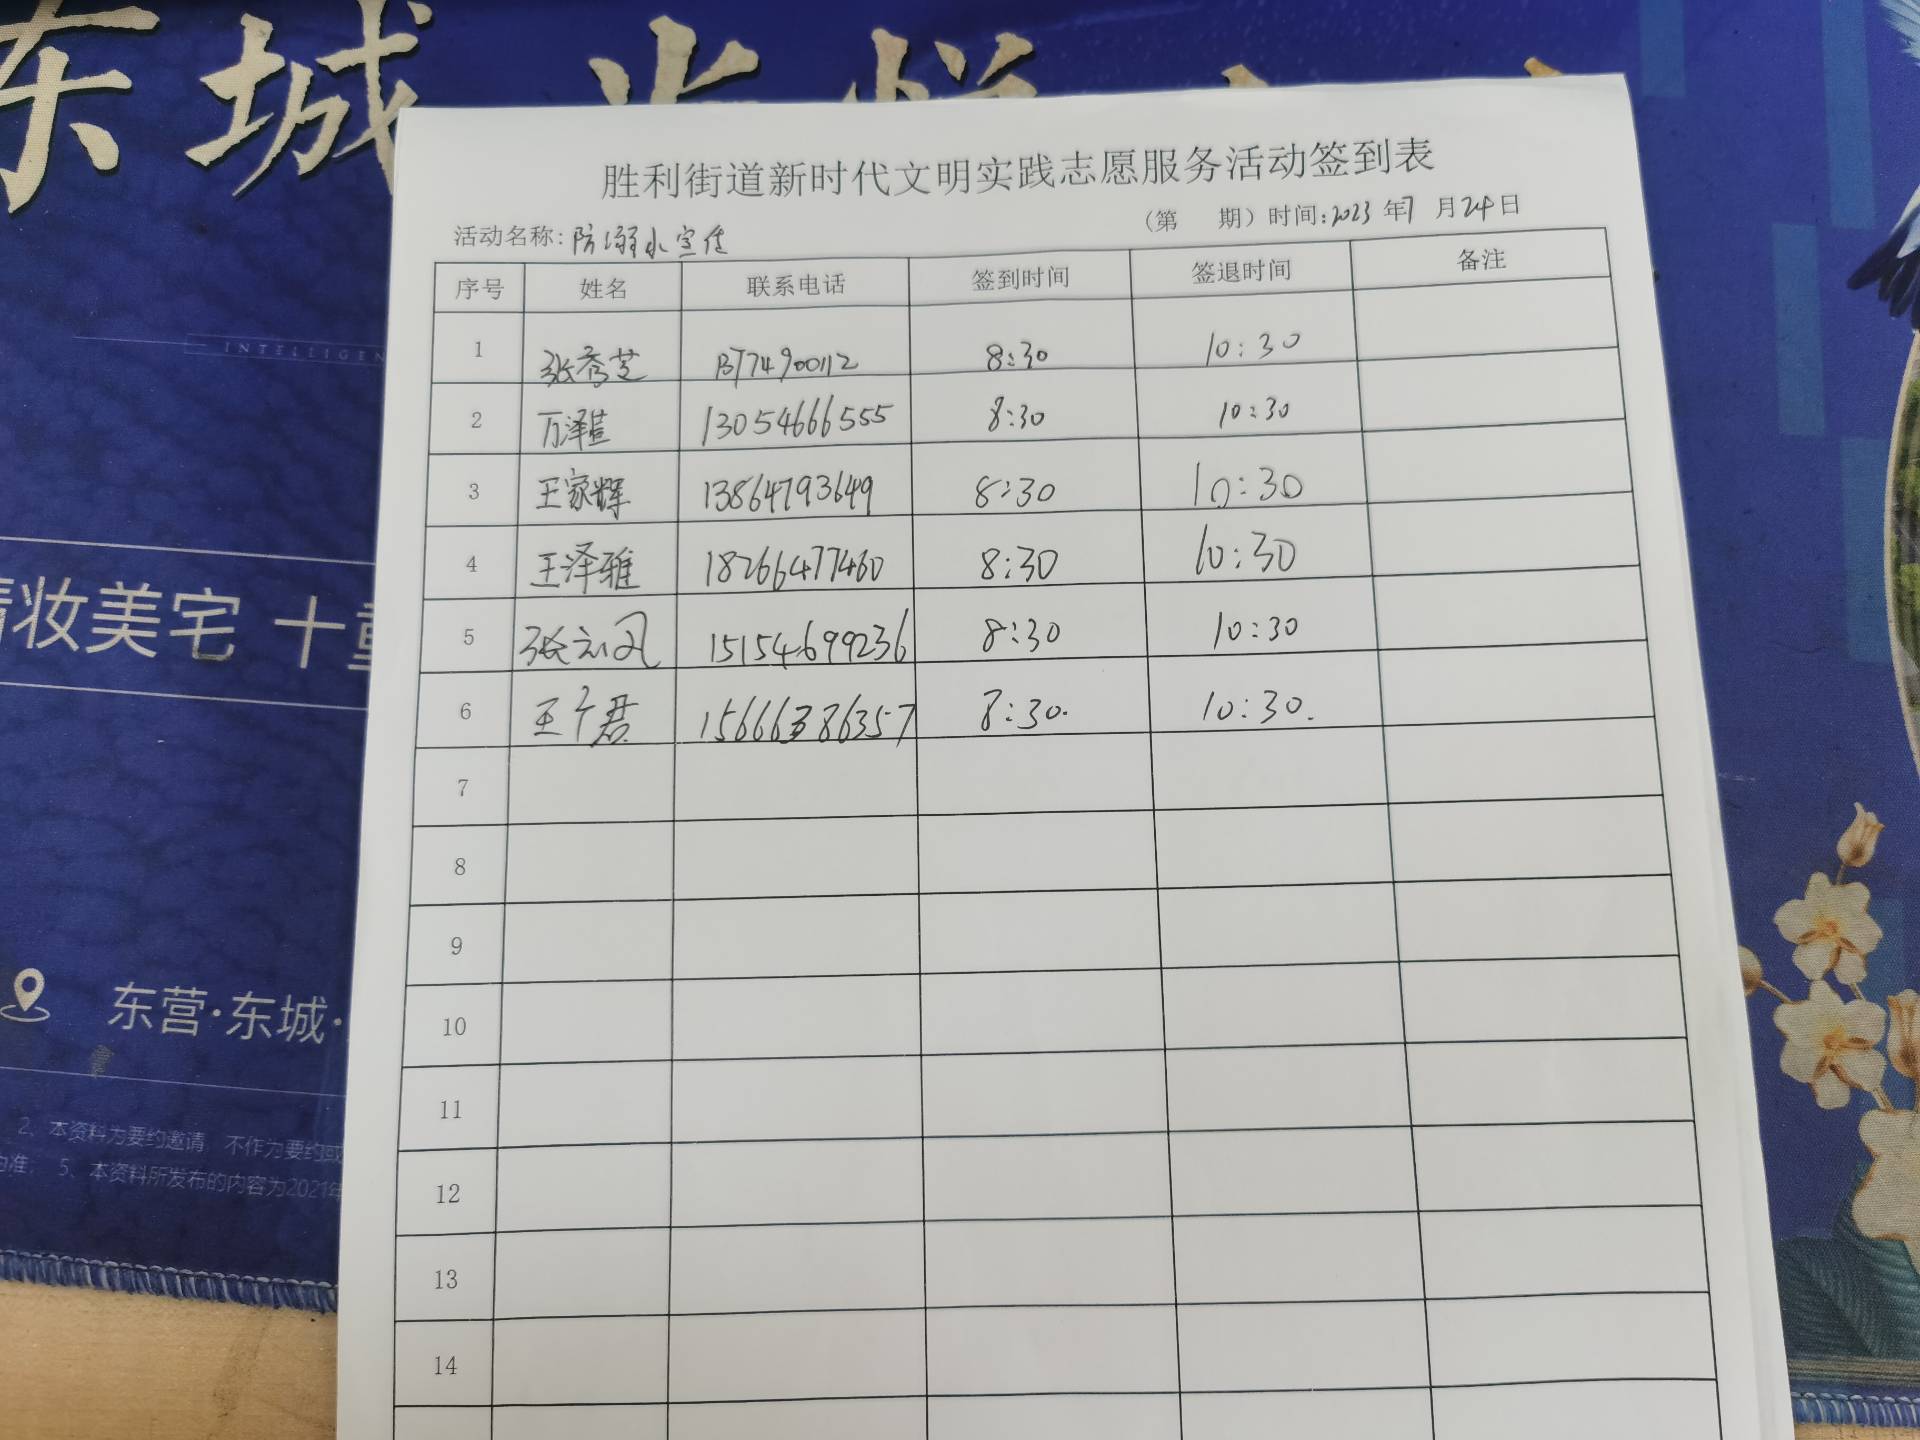 东城
INTELLIGEN
妆美宅 十
东营·东城·
2、本资料为要约邀请，不作为要约或
5、本资料所发布的内容为2021年
胜利街道新时代文明实践志愿服务活动签到表
活动名称：防溺水宣传 （第 期）时间：2023年7月24日
序号 姓名 联系电话 签到时间 签退时间 备注
1 张秀芝 8:30 10:30
2 万泽萱 13054666555 8:30 10:30
3 王家辉 13864793649 8:30 10:30
4 王泽雅 18266477460 8:30 10:30
5 张云凤 15154699236 8:30 10:30
6 王 君 15666386357 8:30. 10:30.
7
8
9
10
11
12
13
14